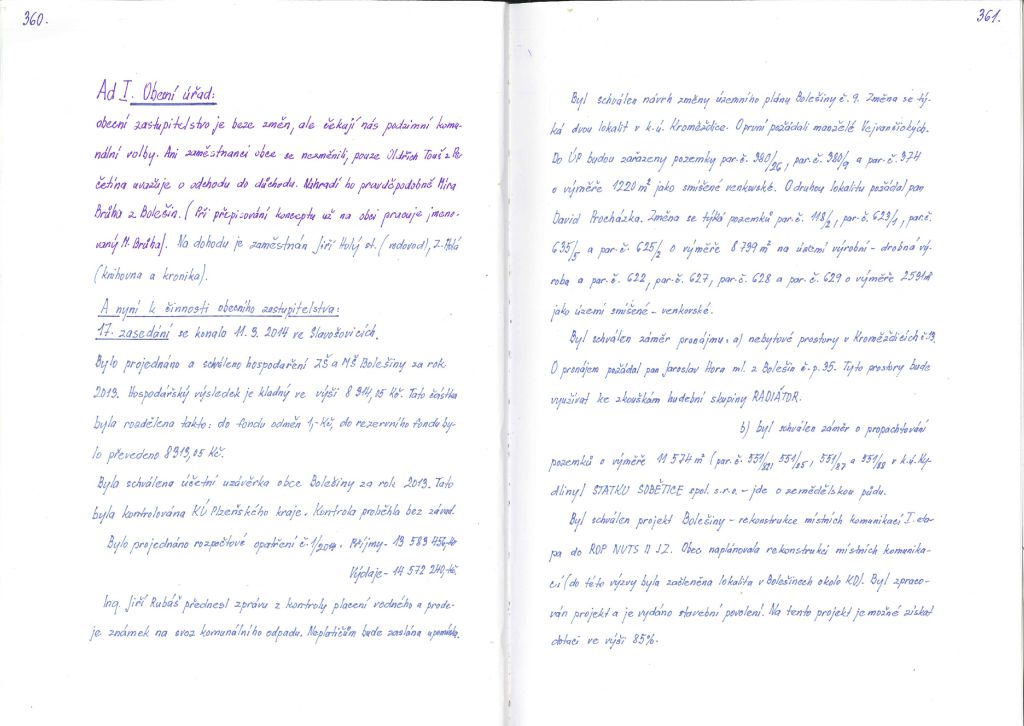 360.
Ad I. Obecní úřad:
obecní zastupitelstvo je beze změn, ale čekají nás podzimní komu-
nální volby. Ani zaměstnanci obce se nezměnili, pouze Oldřich Touš z Pe-
četina uvažuje o odchodu do důchodu. Nahradí ho pravděpodobně Míra
Brůha z Bolešin. (Při přepisování konceptu už na obci pracuje jmeno-
vaný M. Brůha). Na dohodu je zaměstnán Jiří Holý st. (vodovod), Z. Milá
(knihovna a kronika).
A nyní k činnosti obecního zastupitelstva:
17. zasedání se konalo 11. 9. 2014 ve Slavošovicích.
Bylo projednáno a schváleno hospodaření ZŠ a MŠ Bolešiny za rok
2013. Hospodářský výsledek je kladný ve výši 8 914,05 Kč. Tato částka
byla rozdělena takto: do fondu odměn 1,- Kč, do rezervního fondu by-
lo převedeno 8 913,05 Kč.
Byla schválena účetní uzávěrka obce Bolešiny za rok 2013. Tato
byla kontrolována KÚ Plzeňského kraje. Kontrola proběhla bez závad.
Bylo projednáno rozpočtové opatření č. 1/2014. Příjmy - 13 583 456,-Kč
Výdaje - 14 572 240,-Kč.
Ing. Jiří Rubáš přednesl zprávu z kontroly placení vodného a prode-
je známek na svoz komunálního odpadu. Neplatičům bude zaslána upomínka.
361.
Byl schválen návrh změny územního plánu Bolešiny č. 9. Změna se tý-
ká dvou lokalit v k.ú. Kroměždice. O první požádali manželé Vejvančických.
Do ÚP budou zařazeny pozemky par.č. 380/26, par.č. 380/9 a par.č. 374
o výměře 1220 m² jako smíšené venkovské. O druhou lokalitu požádal pan
David Procházka. Změna se týká pozemků par.č. 118/2, par.č. 623/1, par.č.
635/5 a par.č. 625/2 o výměře 8 799 m² na území výrobní - drobná vý-
roba a par.č. 622, par.č. 627, par.č. 628 a par.č. 629 o výměře 2591 m²
jako území smíšené - venkovské.
Byl schválen záměr pronájmu: a) nebytové prostory v Kroměždicích č. 19.
O pronájem požádal pan Jaroslav Hora ml. z Bolešin č.p. 95. Tyto prostory bude
využívat ke zkouškám hudební skupiny RADIÁTOR.
b) byl schválen záměr o propachtování
pozemků o výměře 11 574 m² (par.č. 551/32, 551/35, 551/37 a 551/88 v k.ú. Ky-
dliny) STATKU SOBĚTICE spol. s.r.o. - jde o zemědělskou půdu.
Byl schválen projekt Bolešiny - rekonstrukce místních komunikací I. eta-
pa do ROP NUTS II JZ. Obec naplánovala rekonstrukci místních komunika-
cí (do této výzvy byla začleněna lokalita v Bolešinech okolo KD). Byl zpraco-
ván projekt a je vydáno stavební povolení. Na tento projekt je možné získat
dotaci ve výši 85%.